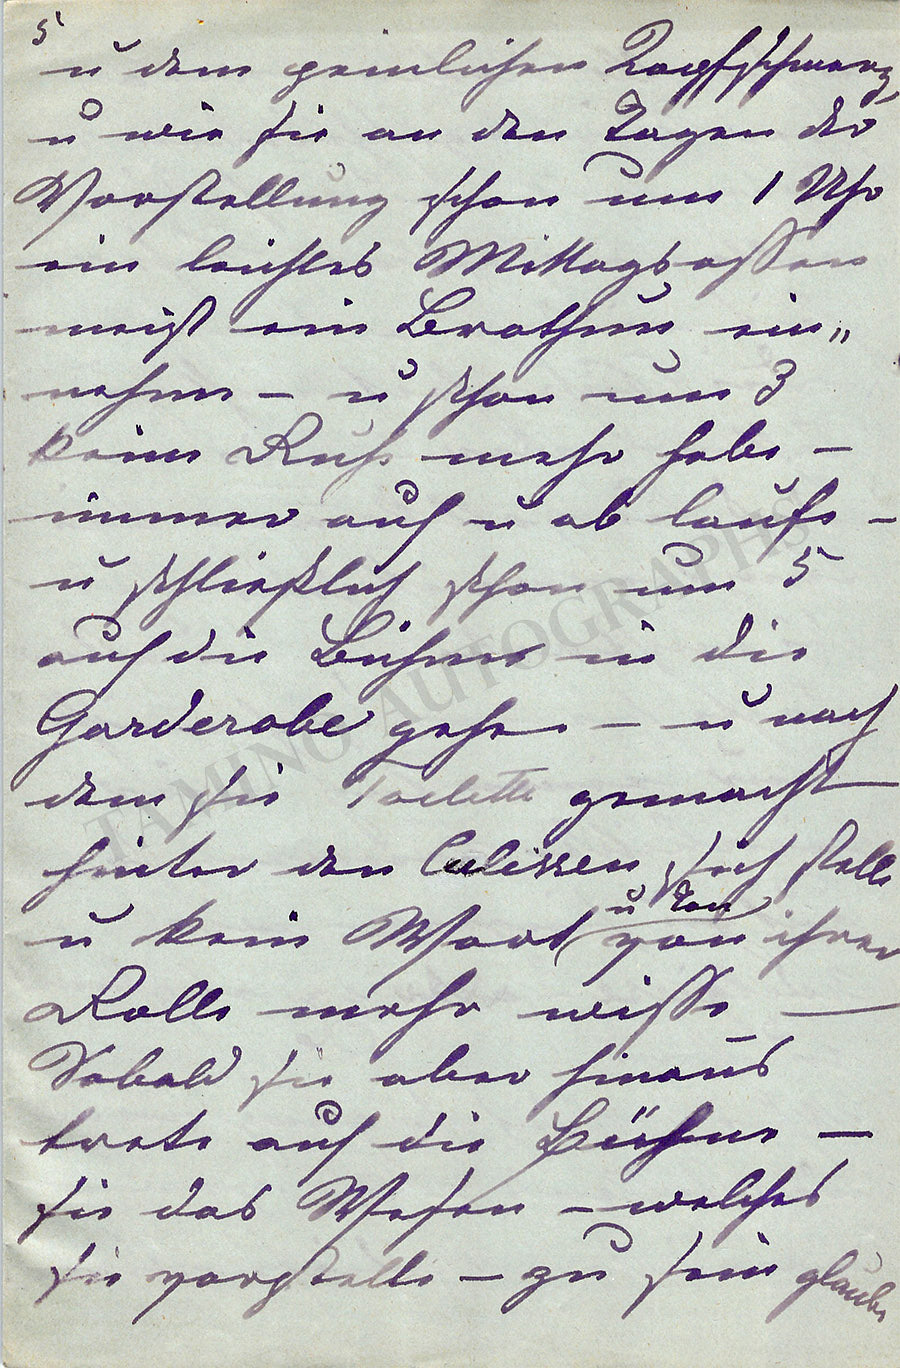 5
u dem peinlichen Kopfschmerz
u wie sie an den Tagen der
Vorstellung schon um 1 Uhr
ein leichtes Mittagsessen
meist ein Brathun ein„
nehme – u schon um 3
keine Ruhe mehr habe –
immer auf u ab laufe –
u schließlich schon um 5
auf die Bühne in die
Garderobe gehe – u nach
dem sie Toilette gemacht
hinter den Culissen sich stelle
u kein Wort u Ton von ihrer
Rolle mehr wisse —
Sobald sie aber hinaus
trete auf die Bühne –
sie das Wesen – welches
sie vorstelle – zu sein glaube
TAMINO AUTOGRAPHS